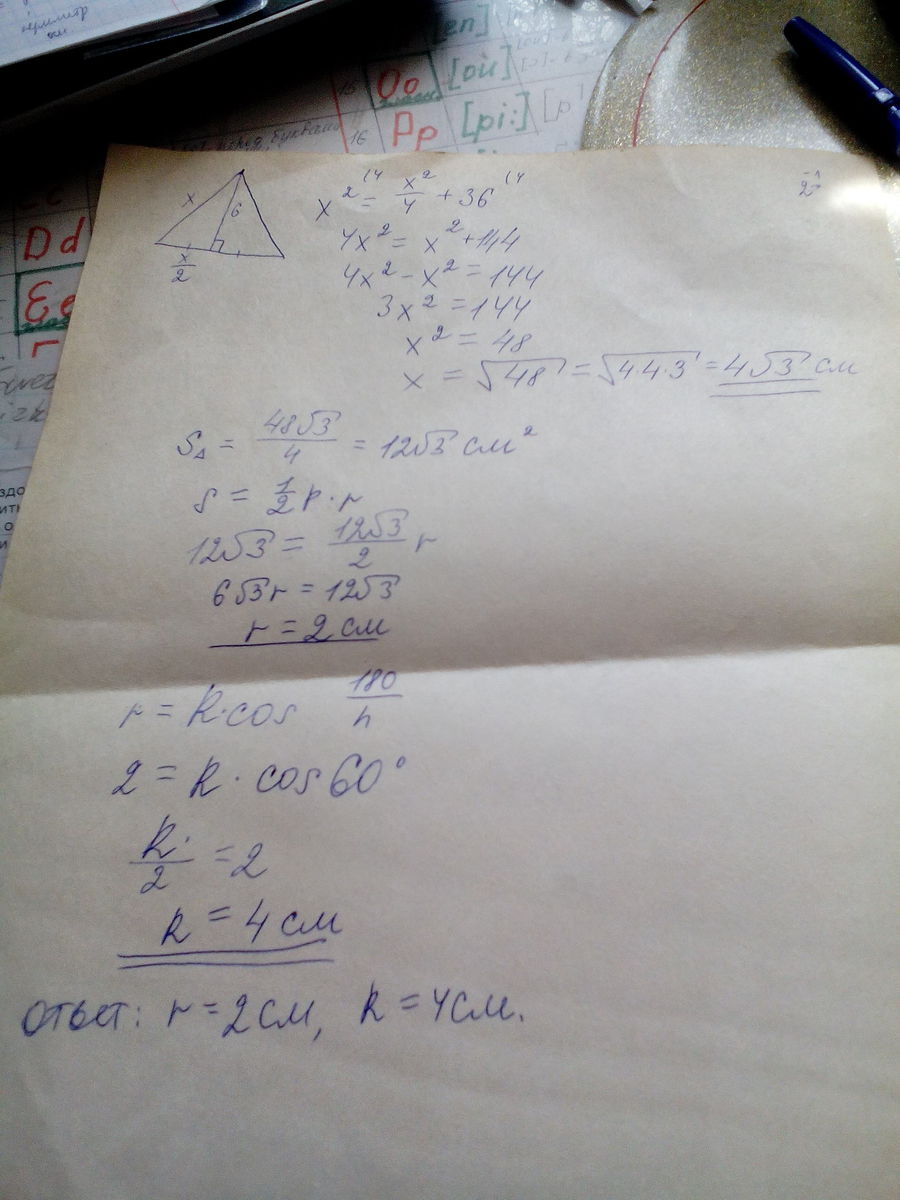 периметр
[en]
16 Oo [où]
Pp [pi:] [p
16
Dd
Ee
x
6
x/2
x² = x²/4 + 36
4x² = x² + 144
4x² - x² = 144
3x² = 144
x² = 48
x = √48 = √4·4·3 = 4√3 см
S△ = 48√3/4 = 12√3 см²
S = 1/2 P·r
12√3 = 12√3/2 r
6√3r = 12√3
r = 2 см
r = R·cos 180/n
2 = R · cos 60°
R·/2 = 2
R = 4 см
Ответ: r = 2 см, R = 4 см.